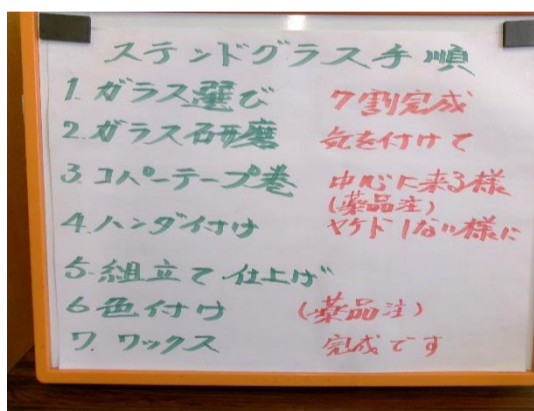 ステンドグラス手順
1. ガラス選び 7割完成
2. ガラス研磨 気を付けて
3. コパーテープ巻 中心に来る様
(薬品注)
4. ハンダ付け ヤケドしない様に
5. 組立て仕上げ
6 色付け (薬品注)
7. ワックス 完成です